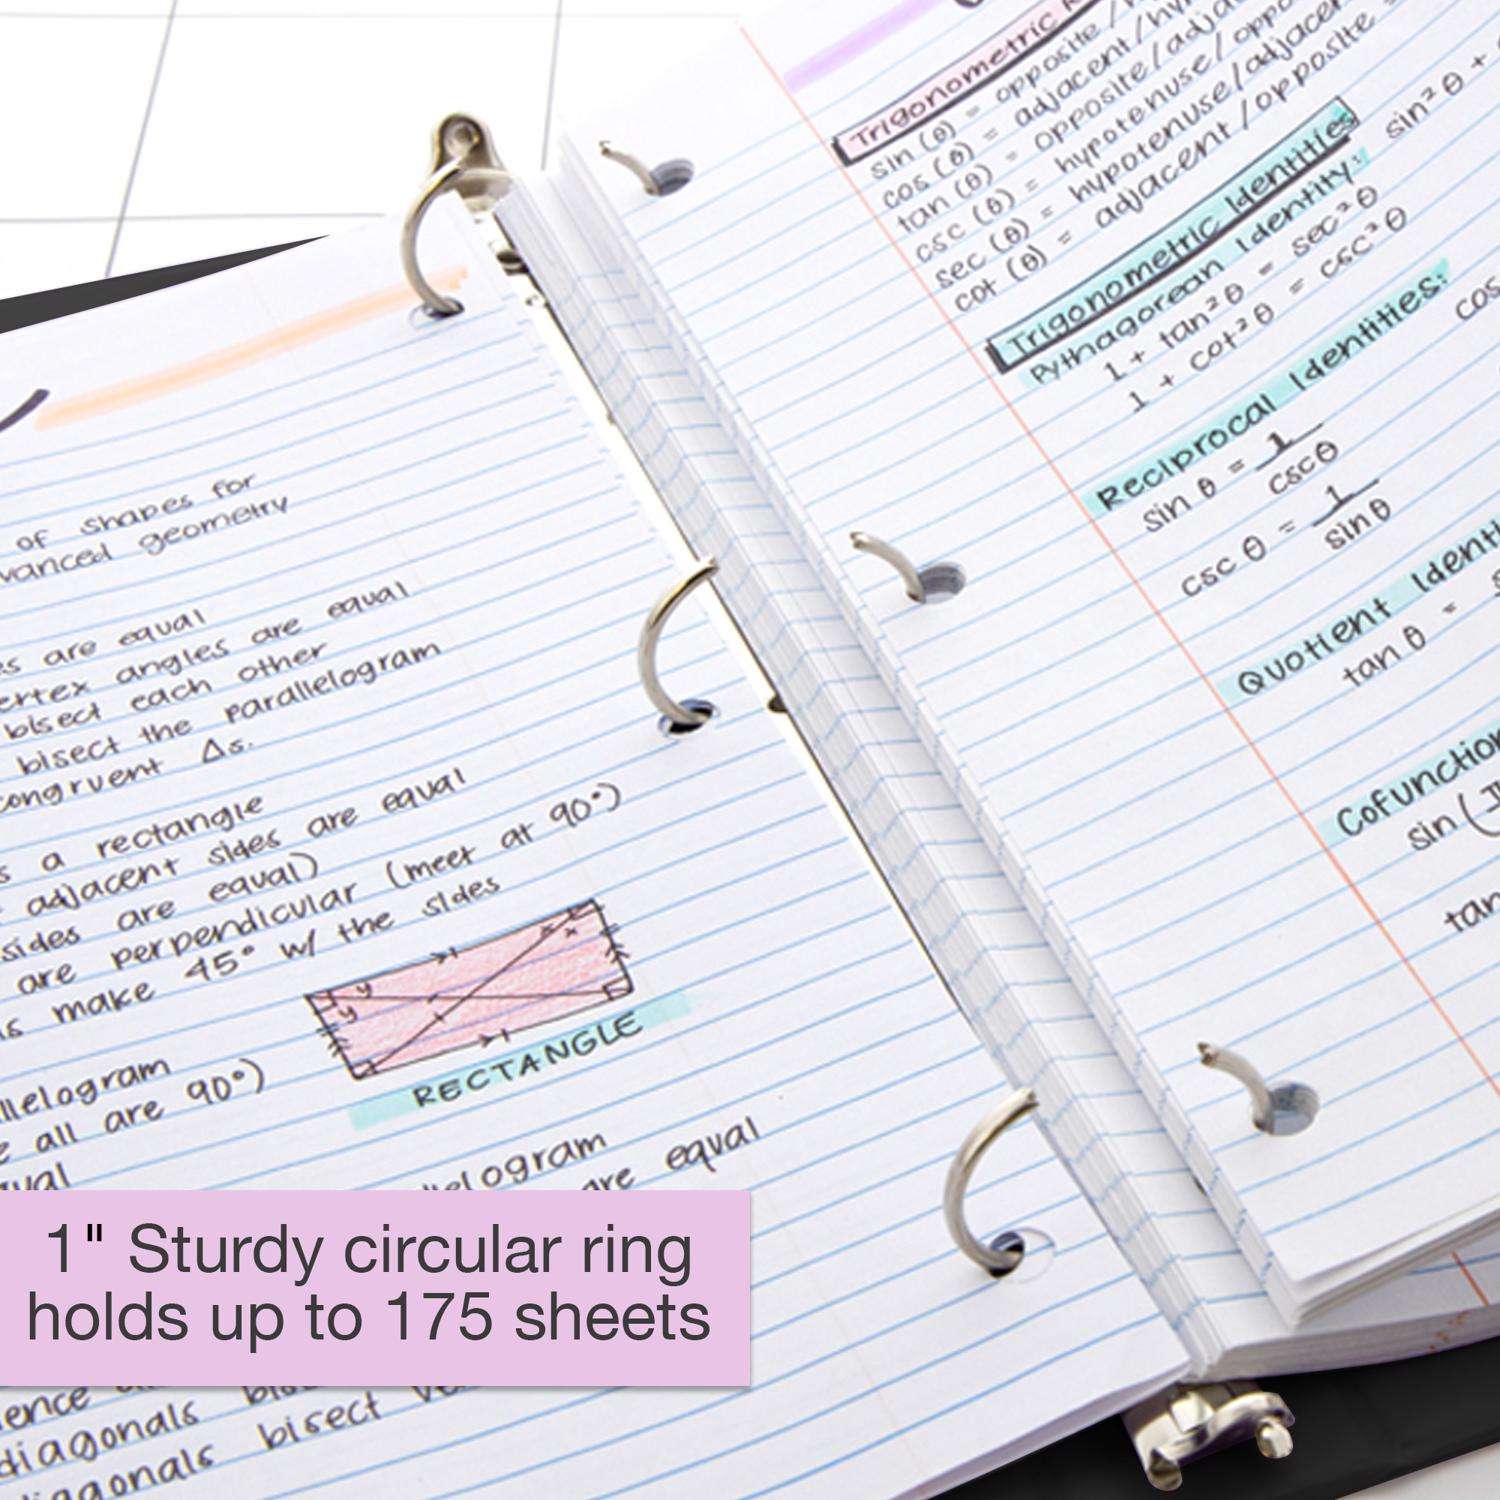 of shapes for
vanced geometry
es are equal
ertex angles are equal
bisect each other
bisect the parallelogram
congruent Δs.
s a rectangle
adjacent sides are equal
sides are equal)
are perpendicular (meet at 90°)
s make 45° w/ the sides
RECTANGLE
llelogram
e all are 90°)
ual
llelogram
are equal
1" Sturdy circular ring
holds up to 175 sheets
ience
diagonals
diagonals bisect
Trigonometric
sin (θ) = opposite /
cos (θ) = adjacent / hy
tan (θ) = opposite / adja
csc (θ) = hypotenuse / oppo
sec (θ) = hypotenuse / adjacen
cot (θ) = adjacent / opposite
Trigonometric Identities
Pythagorean Identity: sin²θ +
1 + tan²θ = sec²θ
1 + cot²θ = csc²θ
Reciprocal Identities:
sin θ = 1/cscθ
cos
csc θ = 1/sinθ
Quotient Identi
tan θ =
Cofunction
sin (
tan